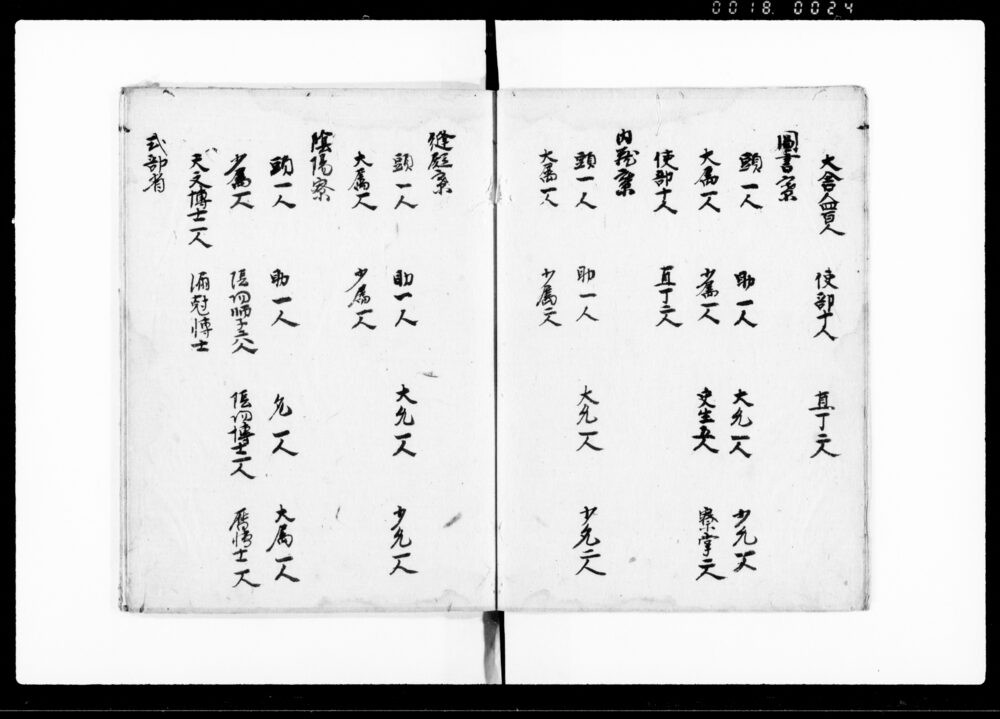 0018 0024
大舎人四百人 使部十人 直丁二人
圖書寮
頭一人 助一人 大允一人 少允一人
大属一人 少属一人 史生五人 寮掌二人
使部十人 直丁二人
内蔵寮
頭一人 助一人 大允一人 少允二人
大属一人 少属二人
縫殿寮
頭一人 助一人 大允一人 少允一人
大属一人 少属一人
陰陽寮
頭一人 助一人 允一人 大属一人
少属一人 陰陽師六人 陰陽博士一人 暦博士一人
天文博士一人 漏尅博士
式部省